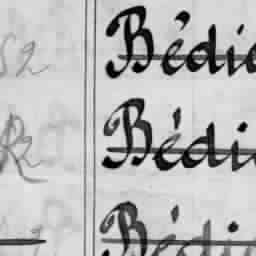 S2 Bédi
R2 Bédi
Bédi